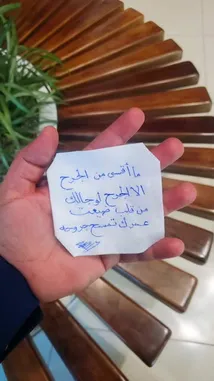 ما أقسى من الجرح
الا الجرح لو جالك
من قلب ضيعت
عمرك تمسح جروحه